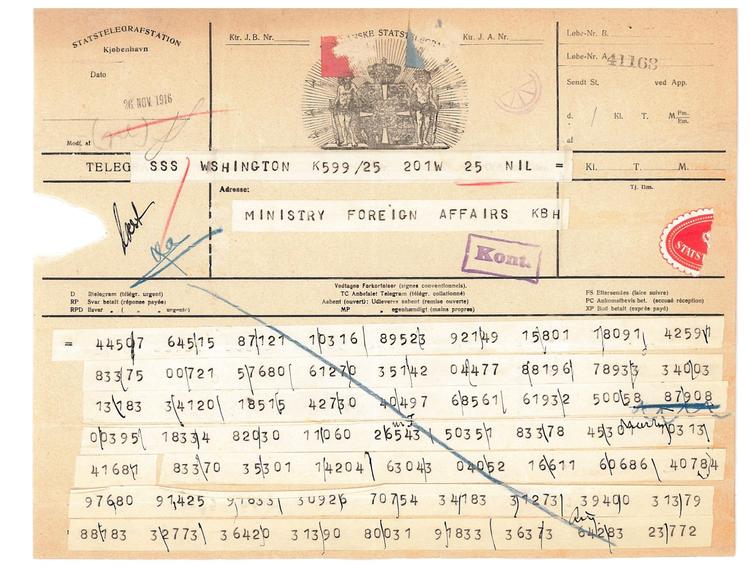 STATSTELEGRAFSTATION
Kjøbenhavn
Dato
26 NOV. 1916
Modt. af
Ktr. J. B. Nr.
DANSKE STATSTELEGRAF
Ktr. J. A. Nr.
Løbe-Nr. B.
Løbe-Nr. A.
41168
Sendt St. ved App.
d. / Kl. T. M. Fm. Em.
af
TELEG SSS WSHINGTON K599/25 201W 25 NIL =
Kl. T. M.
Adresse:
Tj. Bm.
MINISTRY FOREIGN AFFAIRS KBH
Kont.
STATST
Vedtagne Forkortelser (signes conventionnels).
D Iltelegram (télégr. urgent)
TC Anbefalet Telegram (télégr. collationné)
FS Eftersendes (faire suivre)
RP Svar betalt (réponse payée)
Aabent (ouvert): Udleveres aabent (remise ouverte)
PC Ankomstbevis bet. (accusé réception)
RPD Ilsvar . ( - . urgente)
MP . egenhændigt (mains propres)
XP Bud betalt (exprès payé)
= 44507 64515 87121 10316 89523 92149 15801 18091 42591
83375 00721 57680 61270 35142 04477 88196 78933 34003
13183 34120 18515 42730 40497 68561 61932 50058 87908
00395 18334 82030 11060 26543 50351 83378 45301 0313
41687 83370 35301 14204 63043 04052 16611 60686 40784
97680 91425 91833 30926 70754 34183 31273 39400 31379
88183 32773 36420 31390 80031 91833 36373 64283 23772